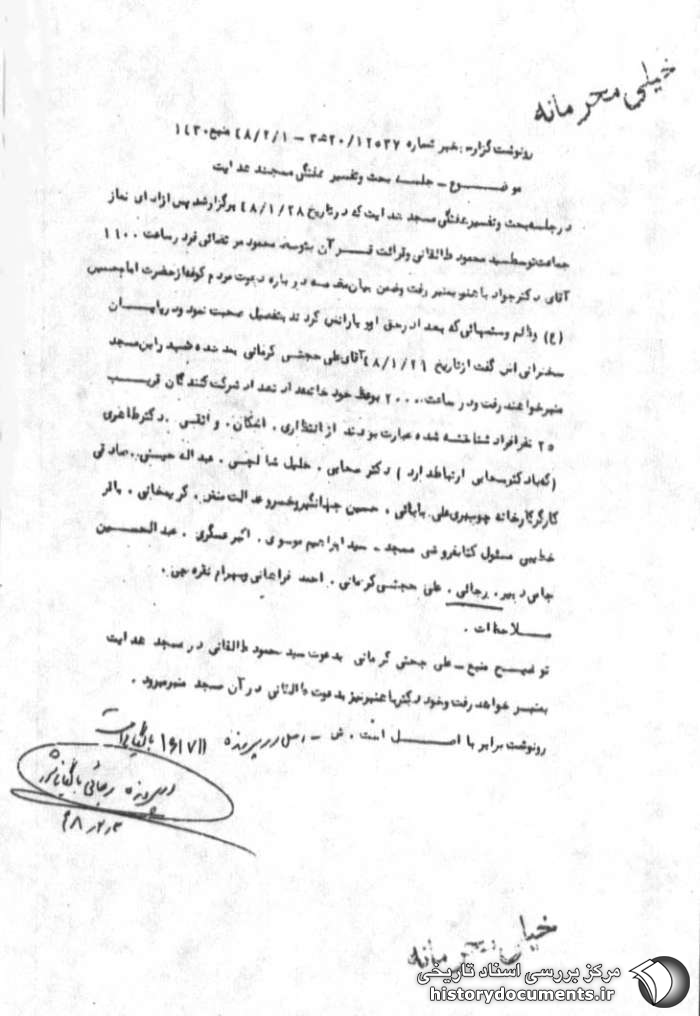 خیلی محرمانه
رونوشت گزارش خبر شماره ۲۰/۱۲۵۳۷ ه‍ ۳ – ۴۸/۲/۱ منبع ۱۴۳۰
موضوع – جلسه بحث و تفسیر هفتگی مسجد هدایت
در جلسه بحث و تفسیر هفتگی مسجد هدایت که در تاریخ ۴۸/۱/۲۸ برگزار شد پس از ادای نماز
جماعت توسط سید محمود طالقانی و قرائت قرآن بتوسط محمود مرتضائی فرد ساعت ۱۱۰۰
آقای دکتر جواد باهنر بمنبر رفت و ضمن بیان مقدمه درباره دعوت مردم کوفه از حضرت امام حسین
(ع) و ظلم و ستمهائی که بعداً در حق او و یارانش کردند بتفصیل صحبت نمود و در پایان
سخنرانی اش گفت از تاریخ ۴۸/۱/۲۹ آقای علی حجتی کرمانی بعد شنبه در این مسجد
منبر خواهند رفت و در ساعت ۲۰۰۰ بوعظ خود خاتمه داد تعداد شرکت کنندگان قریب
۲۵ نفر افراد شناخته شده عبارت بودند از انتظاری . اشکان . واثقی . دکتر طاهری
(که با دکتر سحابی ارتباط دارد) دکتر سحابی . خلیل . عبداله حسینی . صادقی
کارگر کارخانه علی بابائی . حسین جهانگیر و خسرو عدالت منش . کریمخانی . باقر
خطیبی مسئول کتابفروشی مسجد – سید ابراهیم موسوی . اکبر عسگری . عبدالحسین
جامی دبیر . رجائی . علی حجتی کرمانی . احمد فراهانی و بهرام نقره چی .
ملاحظات .
توضیح منبع – علی حجتی کرمانی بدعوت سید محمود طالقانی در مسجد هدایت
بمنبر خواهد رفت و خود دکتر باهنر نیز بدعوت طالقانی در آن مسجد منبر میرود .
رونوشت برابر با اصل است . ش – اصل در پرونده ۱۶۱۷۱۱
در پرونده رجائی بایگانی شود
۴۸٫۲٫۳
خیلی محرمانه
مرکز بررسی اسناد تاریخی
historydocuments.ir